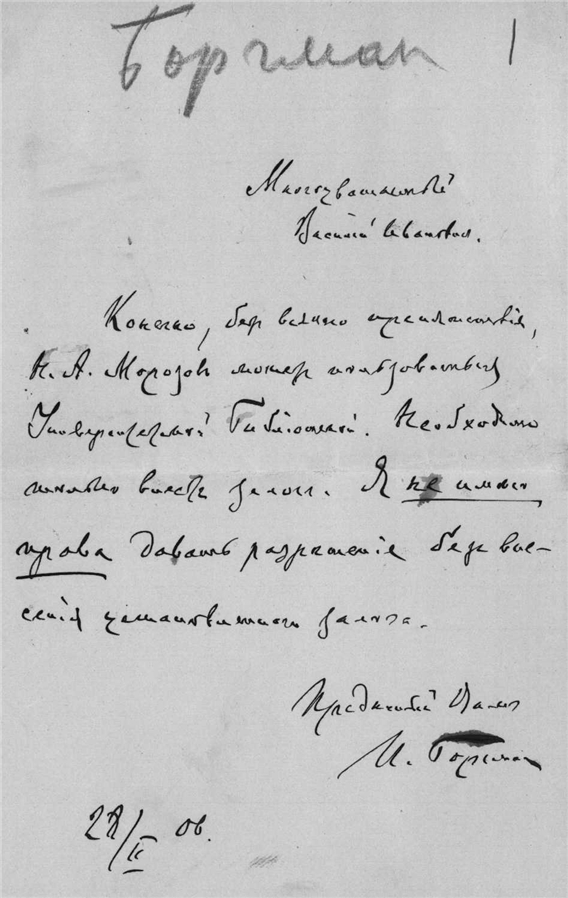 Боргман 1
Многоуважаемый
Василий Иванович.
Конечно, без всякаго препятствія,
Н. А. Морозов может пользоваться
Университетской Библіотекой. Необходимо
только внести залог. Я не имею
права давать разрешеніе без вне-
сенія установленнаго залога.
Преданный Вам
И. Боргман
28/II 06.